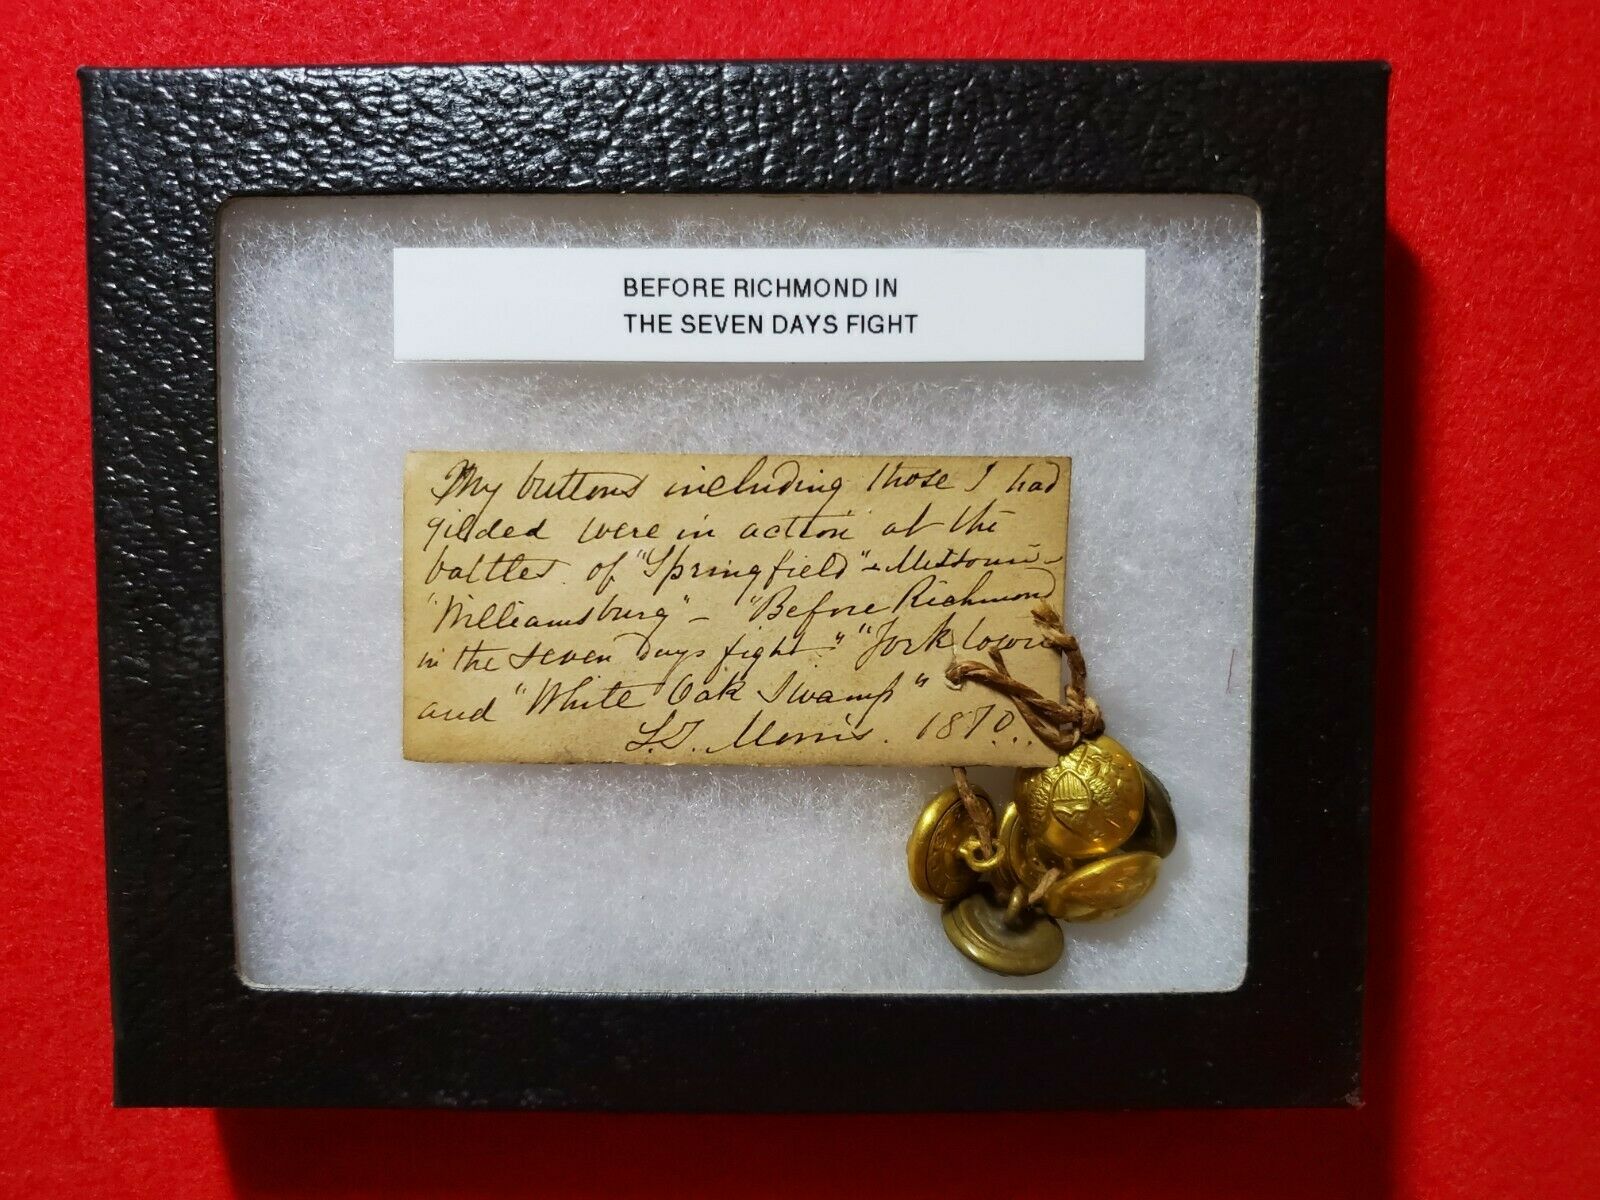 BEFORE RICHMOND IN
THE SEVEN DAYS FIGHT
My buttons including those I had
gilded were in action at the
battles of "Springfield" - Missouri -
"Williamsburg" - "Before Richmond
in the seven days fight -" "Yorktown
and "White Oak Swamp"
Morris. 1870.